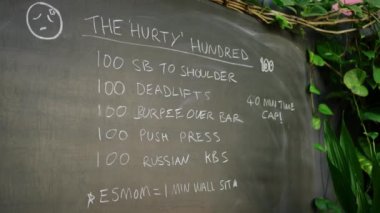 THE 'HURTY' HUNDRED 100
100 SB TO SHOULDER
100 DEADLIFTS
100 BURPEE OVER BAR
40 MIN TIME CAP!
100 PUSH PRESS
100 RUSSIAN KBS
*ESMOM = 1 MIN WALL SIT*